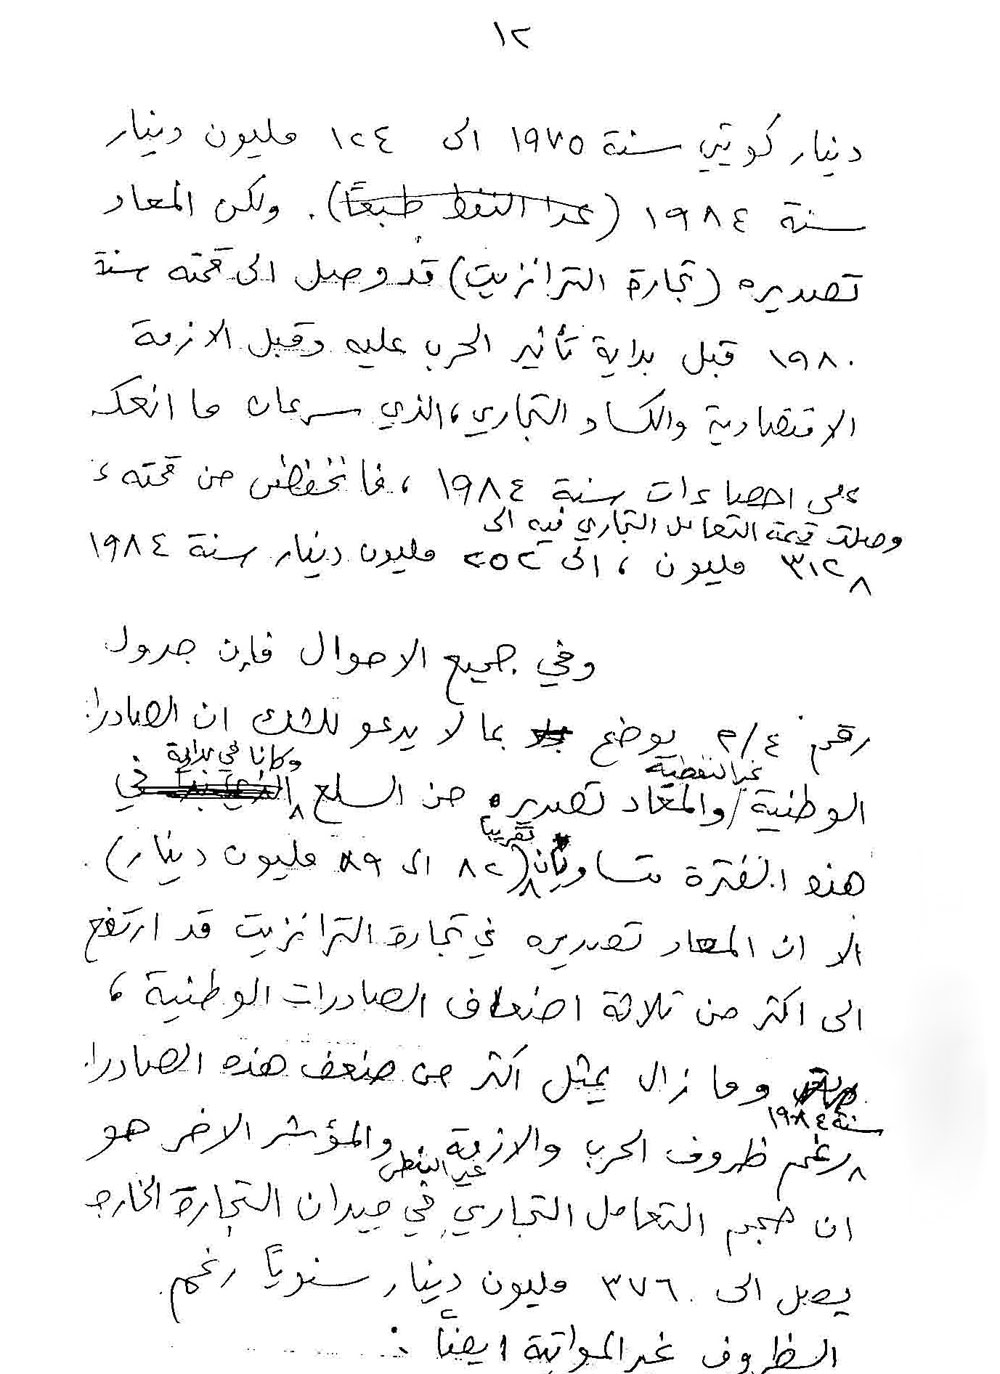 ١٢
دينار كويتي سنة ١٩٧٥ الى ١٢٤ مليون دينار
سنة ١٩٨٤ (عدا النفط طبعاً). ولكن المعاد
تصديره (تجارة الترانزيت) قد وصل الى قمته سنة
١٩٨٠ قبل بداية تأثير الحرب عليه وقبل الازمة
الاقتصادية والكساد التجاري، الذي سرعان ما انعكـ
على احصاءات سنة ١٩٨٤، فانخفض من قمته
وصلت قيمة التعامل التجاري فيه الى
٣١٢ مليون، الى ٢٥٢ مليون دينار سنة ١٩٨٤
وفي جميع الاحوال فإن جدول
رقم ٢/٤ يوضح بما لا يدعو للشك ان الصادرا
غير النفطية وكانا في بداية
الوطنية / والمعاد تصديره من السلع في
تقريباً
هذه الفترة متساويان (٨٢ الى ٨٩ مليون دينار).
الا ان المعاد تصديره في تجارة الترانزيت قد ارتفع
الى اكثر من ثلاثة اضعاف الصادرات الوطنية،
وما زال يمثل اكثر من ضعف هذه الصادرا
سنة ١٩٨٤
رغم ظروف الحرب والازمة. والمؤشر الاخر هو
غير النفطي
ان حجم التعامل التجاري في ميدان التجارة الخارجـ
يصل الى ٣٧٦ مليون دينار سنوياً رغم
الظروف غير المواتية ايضاً :